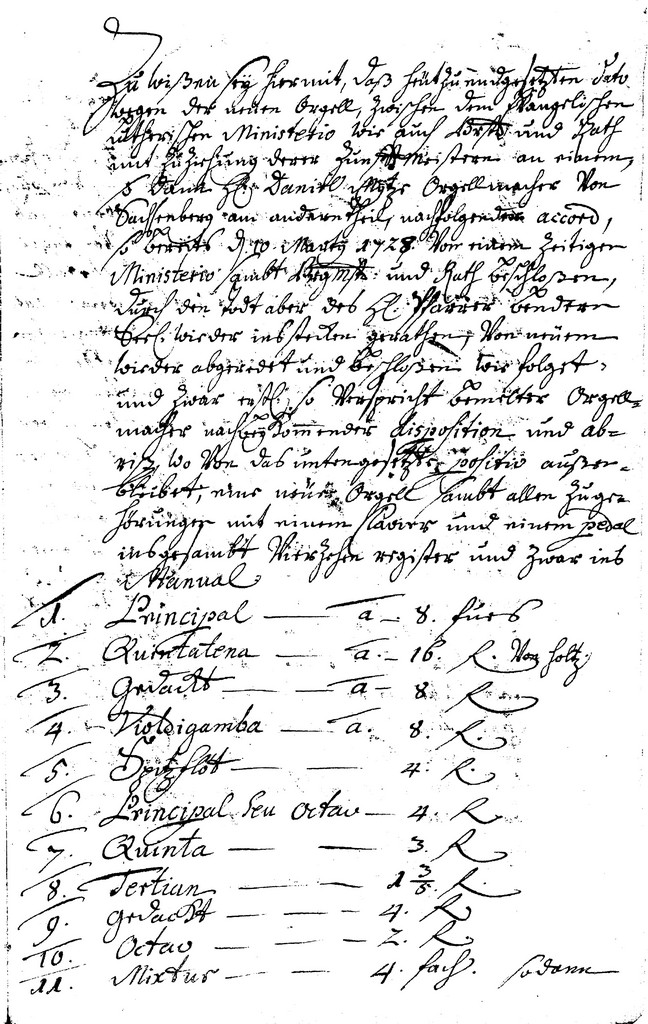 Zu wißen sey hiermit, daß heut zu endgesetzten dato
wegen der neuen Orgell, zwischen dem Evangelischen
Lutherischen Ministerio wie auch und Rath
mit Zuziehung derer Zunfftmeistern an einem,
so dann H. Daniel Mütze Orgellmacher Von
Sachsenberg am andern theil, nachfolgender accord,
so bereits d 10. Martz 1728. Von einem Zeitigen
Ministerio sambt und Rath beschloßen,
durch den todt aber des H. Pfarrer
Seel. wieder instecken gerathen, Von neuem
wieder abgeredet und beschloßen wie folget:
und zwar erstl. so Verspricht bemelter Orgell-
macher nach beykommender disposition und ab-
riß, wo Von das unten gesetzte positiv außen-
bleibet, eine neue Orgell sambt allen Zuge-
hörungen mit einem Clavier und einem pedal
insgesambt Vierzehen register und zwar ins
Manual
1. Principal — a – 8. fues
2. Quintatena — a. – 16. f. Von holtz
3. Gedackt — a – 8 f.
4. Violdigamba — a. 8. f.
5. Spitzflöt — — 4. f.
6. Principal seu Octav — 4. f.
7. Quinta — — 3. f.
8. Tertian — — 1 3/5. f.
9. Gedackt — — — 4. f.
10. Octav — — — 2. f.
11. Mixtur — — — 4. fach. sodann